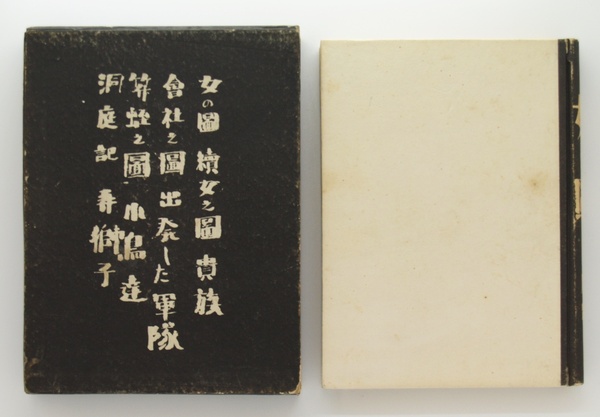 女の圖 續女之圖 貴族
會社之圖 出発した軍隊
笄蛭之圖 小鳥達
洞庭記 春獅子